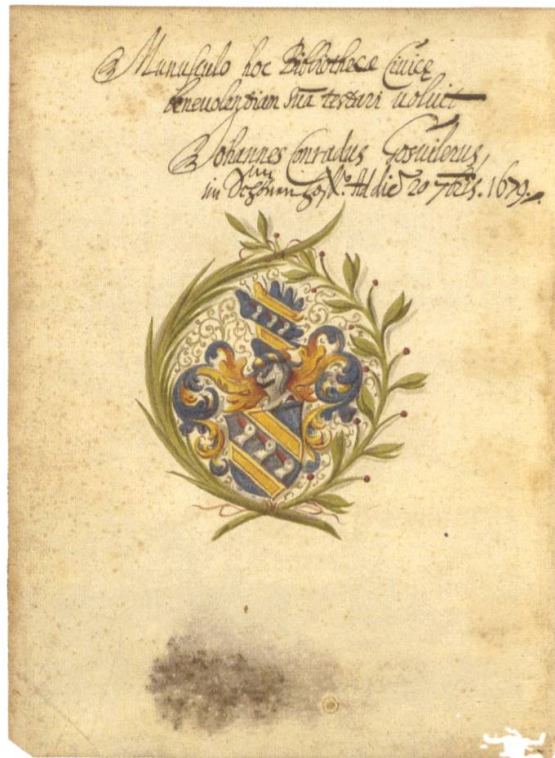 Munusculo hoc Bibliothecæ Civicę
benevolentiam suā testari voluit
Johannes Conradus Gosvilerus,
im Schönen Ad diē 20 7bris. 1679.